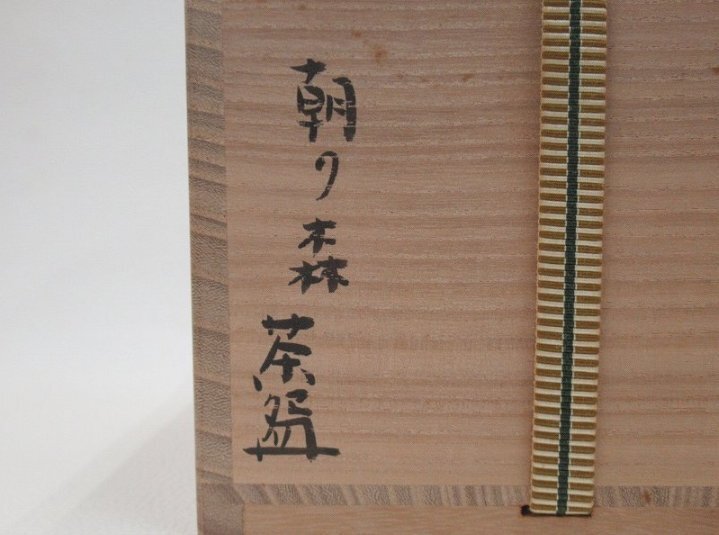 朝の森 茶盌